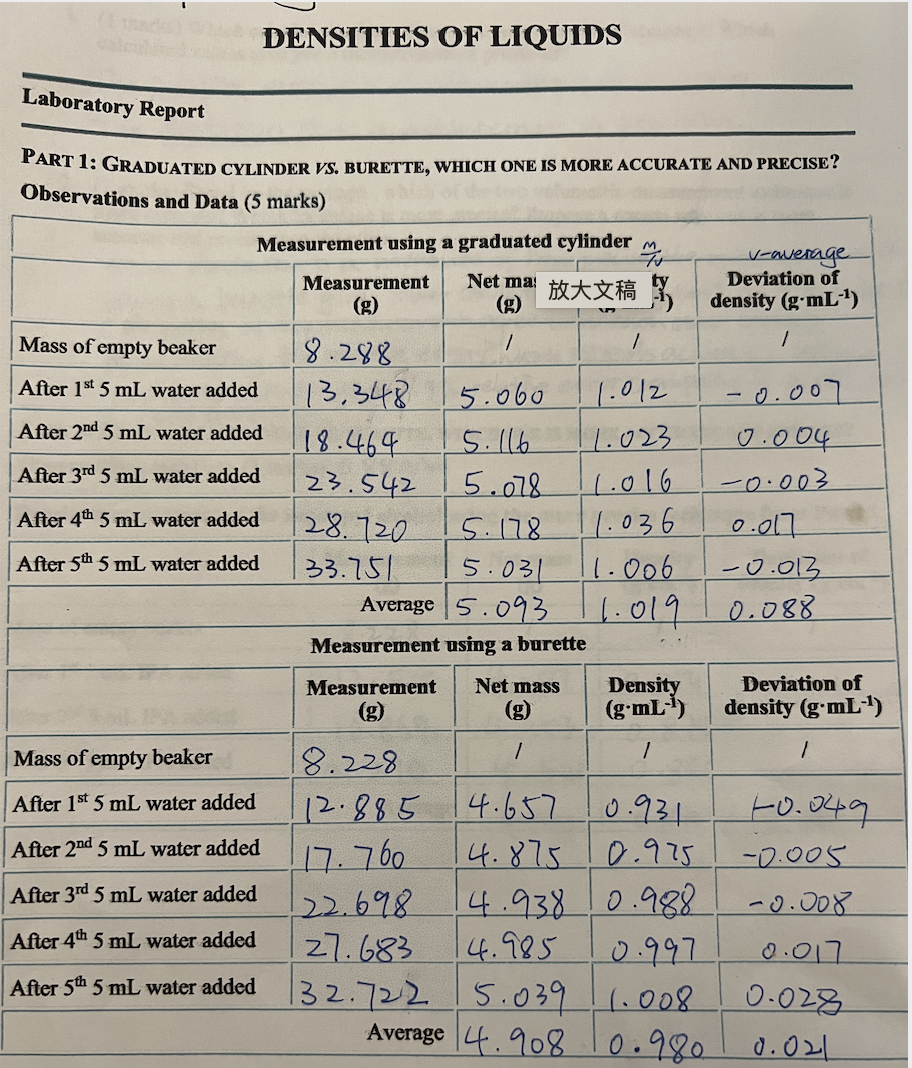 DENSITIES OF LIQUIDS
Laboratory Report
PART 1: GRADUATED CYLINDER VS. BURETTE, WHICH ONE IS MORE ACCURATE AND PRECISE?
Observations and Data (5 marks)
Measurement using a graduated cylinder m/v v-average
Measurement (g) Net mas (g) 放大文稿 ty -1) Deviation of density (g·mL-1)
Mass of empty beaker 8.288 / / /
After 1st 5 mL water added 13.348 5.060 1.012 -0.007
After 2nd 5 mL water added 18.464 5.116 1.023 0.004
After 3rd 5 mL water added 23.542 5.078 1.016 -0.003
After 4th 5 mL water added 28.720 5.178 1.036 0.017
After 5th 5 mL water added 33.751 5.031 1.006 -0.013
Average 5.093 1.019 0.088
Measurement using a burette
Measurement (g) Net mass (g) Density (g·mL-1) Deviation of density (g·mL-1)
Mass of empty beaker 8.228 / / /
After 1st 5 mL water added 12.885 4.657 0.931 -0.049
After 2nd 5 mL water added 17.760 4.875 0.975 -0.005
After 3rd 5 mL water added 22.698 4.938 0.988 -0.008
After 4th 5 mL water added 27.683 4.985 0.997 0.017
After 5th 5 mL water added 32.722 5.039 1.008 0.028
Average 4.908 0.980 0.021